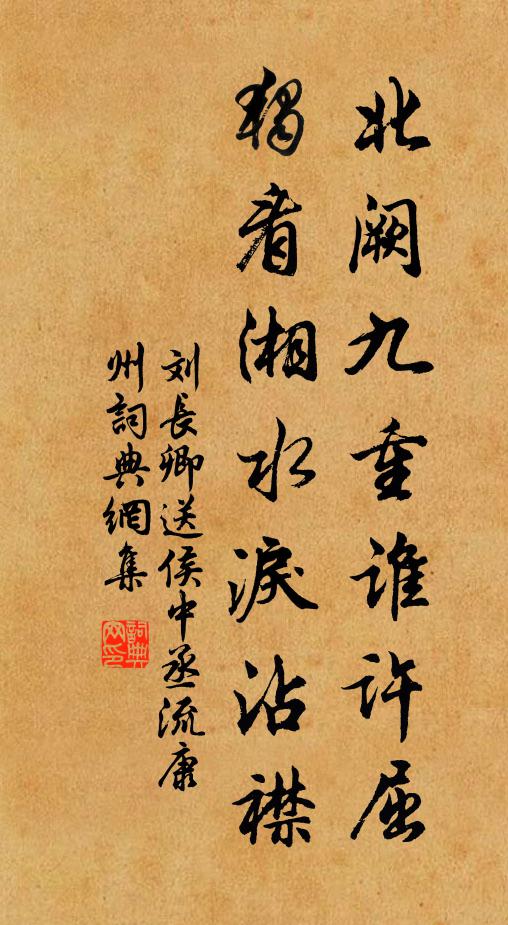 北阙九重谁许屈
独看湘水淚沾襟
刘長卿送侯中丞流康
州詞典網集
詞典网印